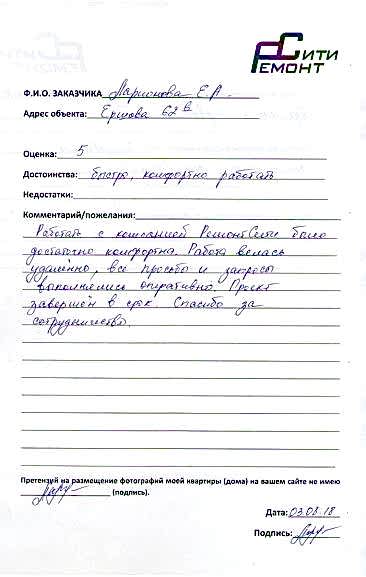 СИТИ
РЕМОНТ
Ф.И.О. ЗАКАЗЧИКА Ларионова Е.А.
Адрес объекта: Ершова 62в
Оценка: 5
Достоинства: быстро, комфортно работать
Недостатки:
Комментарий/пожелания:
Работать с компанией РемонтСити было
достаточно комфортна. Работа велась
удалённо, все просьбы и запросы
выполнялись оперативно. Проект
завершён в срок. Спасибо за
сотрудничество.
Претензий на размещение фотографий моей квартиры (дома) на вашем сайте не имею
(подпись).
Дата: 03.08.18
Подпись: